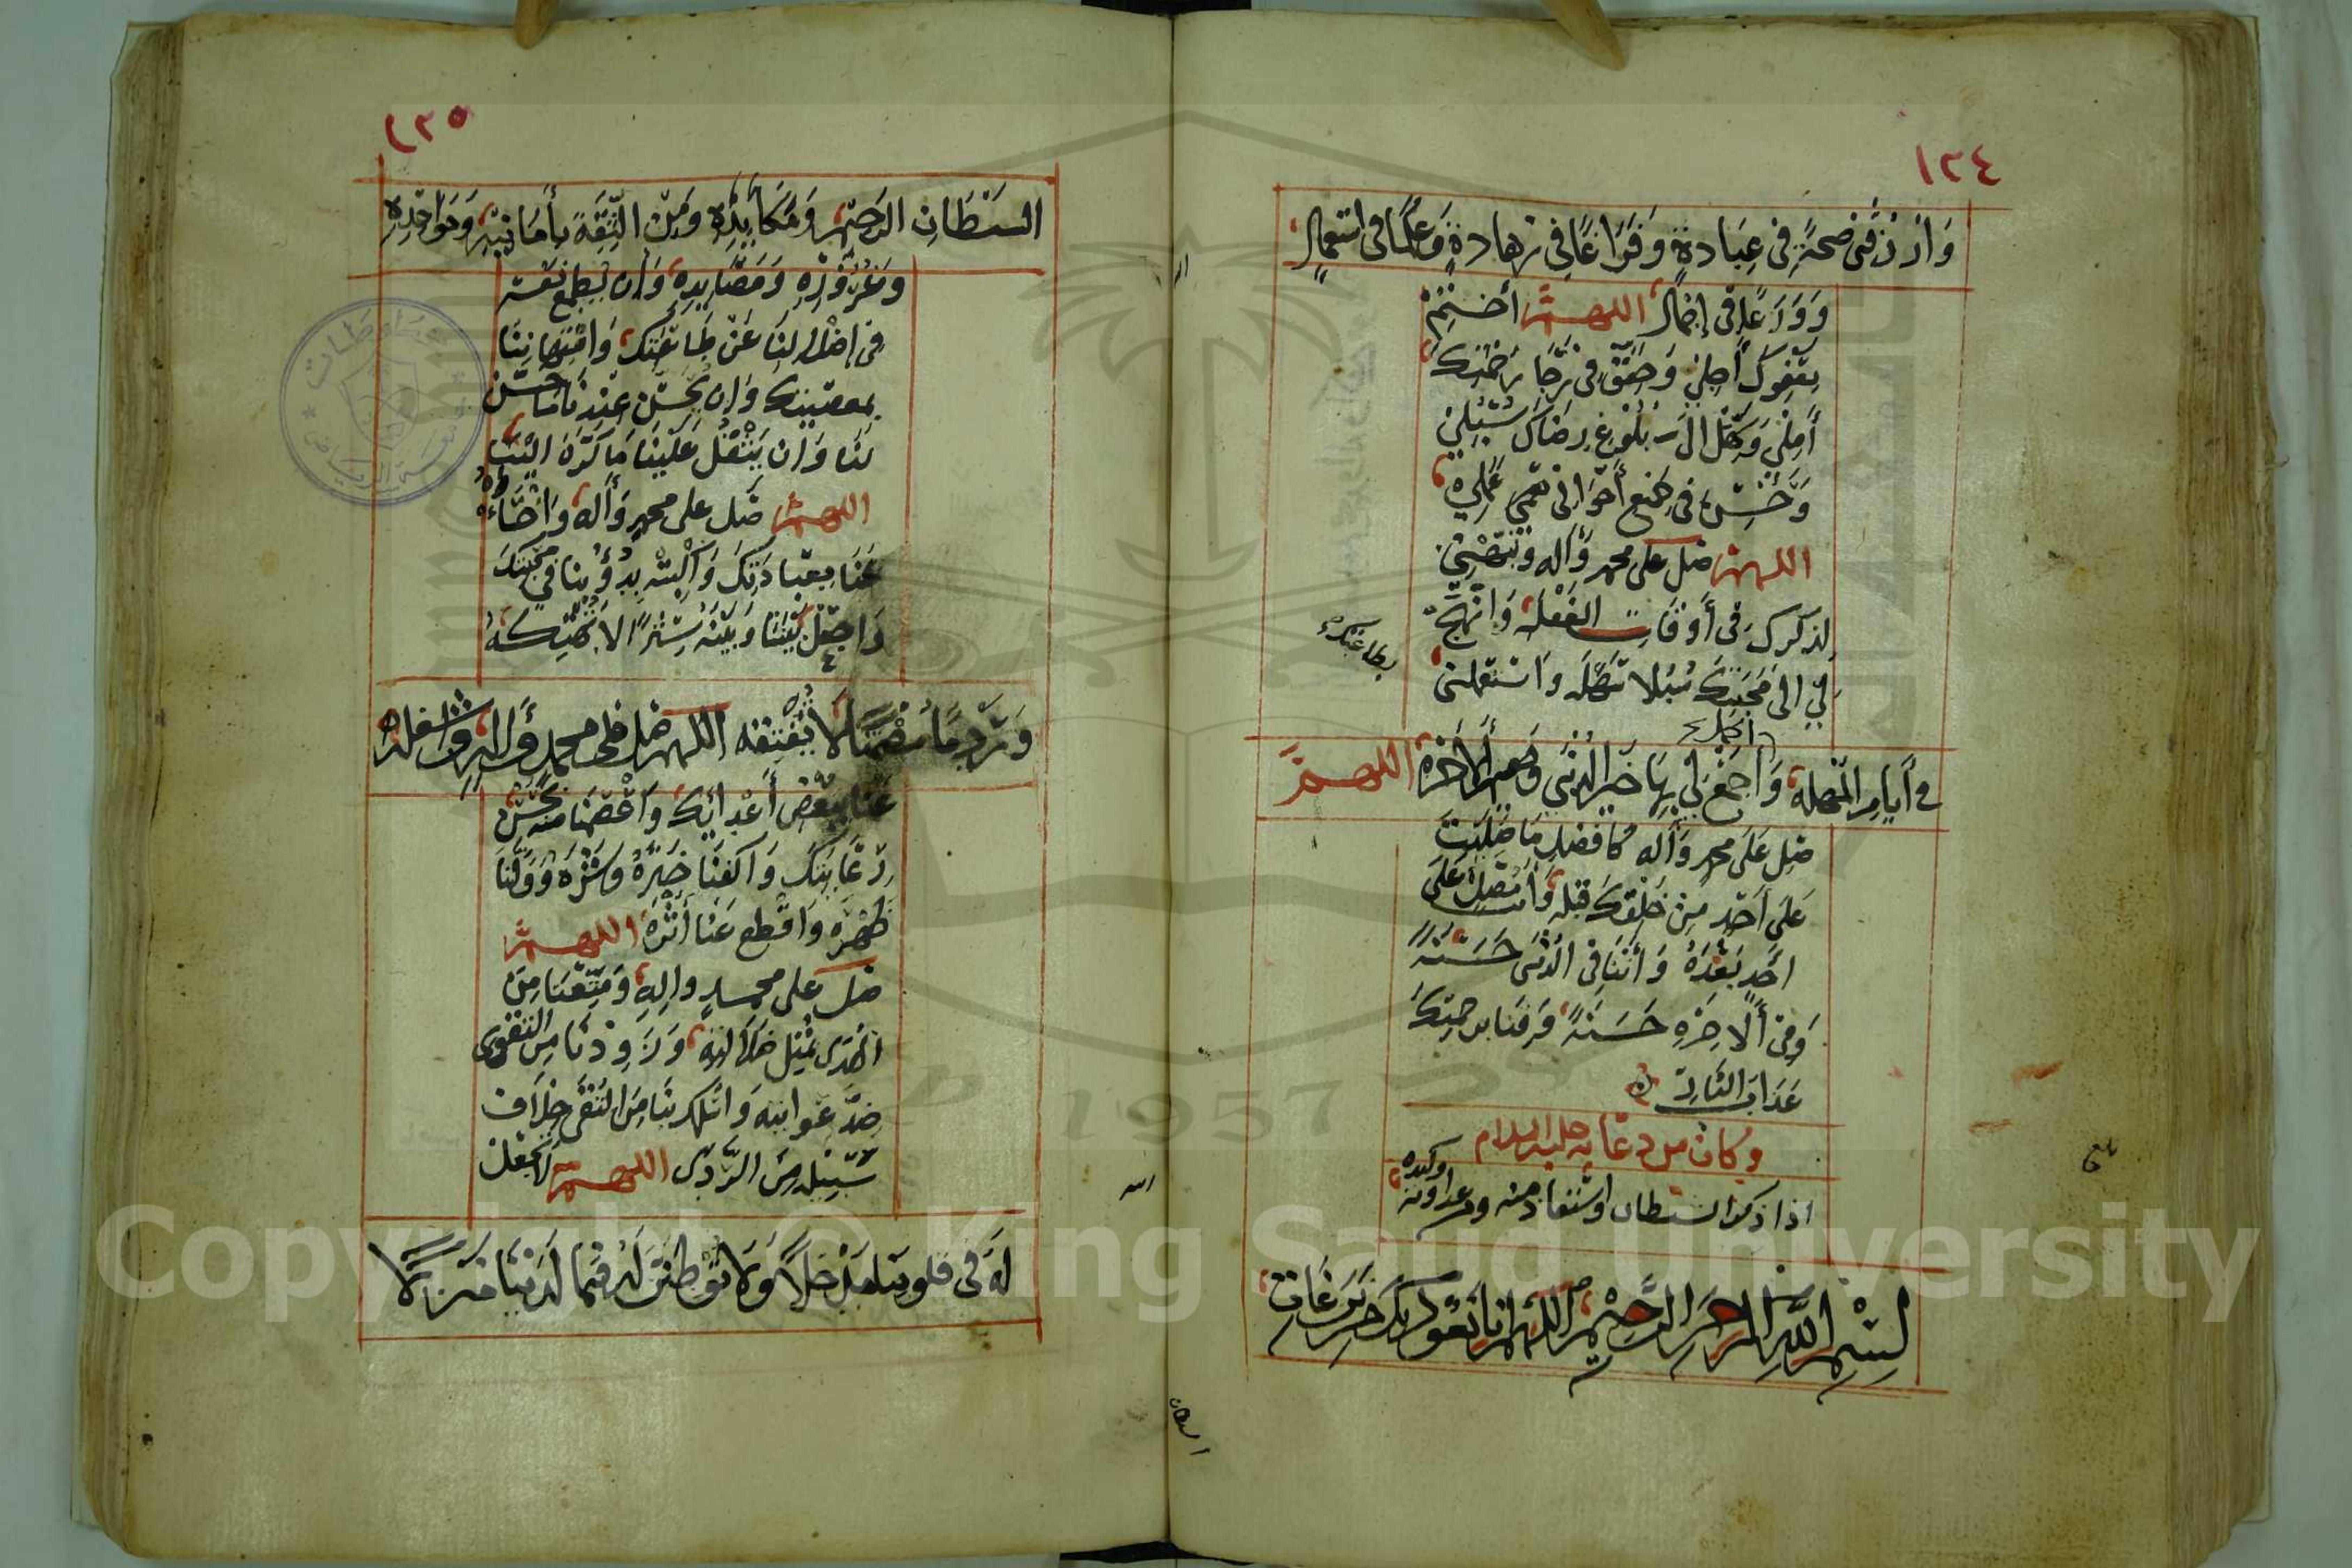 ١٢٤
وَارْزُقْنِي صِحَّةً فِي عِبَادَةٍ وَفَرَاغًا فِي زَهَادَةٍ وَعِلْمًا فِي اسْتِعْمَالٍ
وَوَرَعًا فِي إِجْمَالٍ اللهم أَخْتِمْ
بِعَفْوِكَ أَجَلِي وَحَقِّقْ فِي رَجَا رَحْمَتِكَ
أَمَلِي وَسَهِّلْ إِلَى بُلُوغِ رِضَاكَ سُبُلِي
وَحَسِّنْ فِي جَمِيعِ أَحْوَالِي عَمَلِي
اللهم صل على محمد وآله ونبهني
لذكرك في أوقات الغفلة وَانْهَجْ
لِي إلى مَحَبَّتِكَ سُبُلا سَهْلَه وَاسْتَعْمِلْنِي
بطاعتك
في أيام المهلة وَاجْمَعْ لِي بِهَا خَيْرَ الدنيى وَالآخرة اللهم
أكمل
صل عَلَى محمد وآله كافضل مَا صَلَّيْتَ
عَلَى أَحَدٍ مِنْ خَلْقِكَ قبله وَأنت مُصَلٍّ عَلَى
أَحَدٍ بَعْدَهُ وَأتنا فِي الدُّنْيَى حَسَنَةً
وَفِي الآخِرَةِ حَسَنَةً وَقِنَا برحمتك
عَذَابَ النَّارِ
وكان من دعائه عليه السلام
اذا ذكر الشيطان واستعاذ منه ومن عداوته وكيده
بلغ
بِسْمِ اللَّهِ الرَّحْمَنِ الرَّحِيمِ اللهم إنا نَعُوذُ بِكَ مِنْ نَزَغَاتِ
الشيطان
١٢٥
الشَّيْطَانِ الرَّجِيمِ وَمَكَايِدِهِ وَمِنَ الثِّقَةِ بِأَمَانِيِّهِ وَمَوَاعِيدِهِ
وَغُرُورِهِ وَمَصَايِدِهِ وَأن يُطْمِعَ نَفْسَه
فِي إضْلالِنَا عَنْ طَاعَتِكَ وَامْتِهَانِنَا
بمعصيتك وَان يَحْسُنَ عِنْدَنَا مَا حَسَّنَ
لَنَا وَان يَثْقُلَ عَلَيْنَا مَا كَرَّهَ إِلَيْنَا
اللهم صل على محمد وآله وَاخْسَأْهُ
عَنَّا بِعِبَادَتِكَ وَاكْبِتْهُ بِدُؤُوبِنَا فِي مَحَبَّتِكَ
وَاجْعَلْ بَيْنَنَا وَبَيْنَهُ سِتْرًا لا يَهْتِكُهُ
وَرَدْمًا مُصْمَتًا لا يَفْتِقُه اللهم صل على محمد وآله واشغله
عَنَّا بِبَعْضِ أَعْدَائِكَ وَاعْصِمْنَا مِنْهُ بِحُسْنِ
رِعَايَتِكَ وَاكْفِنَا خَتْرَهُ وَشَرَّهُ وَوَلِّنَا
ظَهْرَهُ وَاقْطَعْ عَنَّا أَثَرَهُ اللهم
صل على محمدٍ وآلِهِ وَمَتِّعْنَا مِنَ
الْهُدَى بِمِثْلِ ضَلالَتِه وَزَوِّدْنَا مِنَ التَّقْوَى
ضِدَّ غَوَايَتِه وَاسْلُكْ بِنَا مِنَ التُّقَى خِلافَ
سَبِيلِهِ مِنَ الرَّدَى اللهم لا تجْعَلْ
لَهُ فِي قلوبنا مَدْخَلاً وَلا تُوَطِّنَنَّ لَهُ فِيمَا لَدَيْنَا مَنْزِلاً